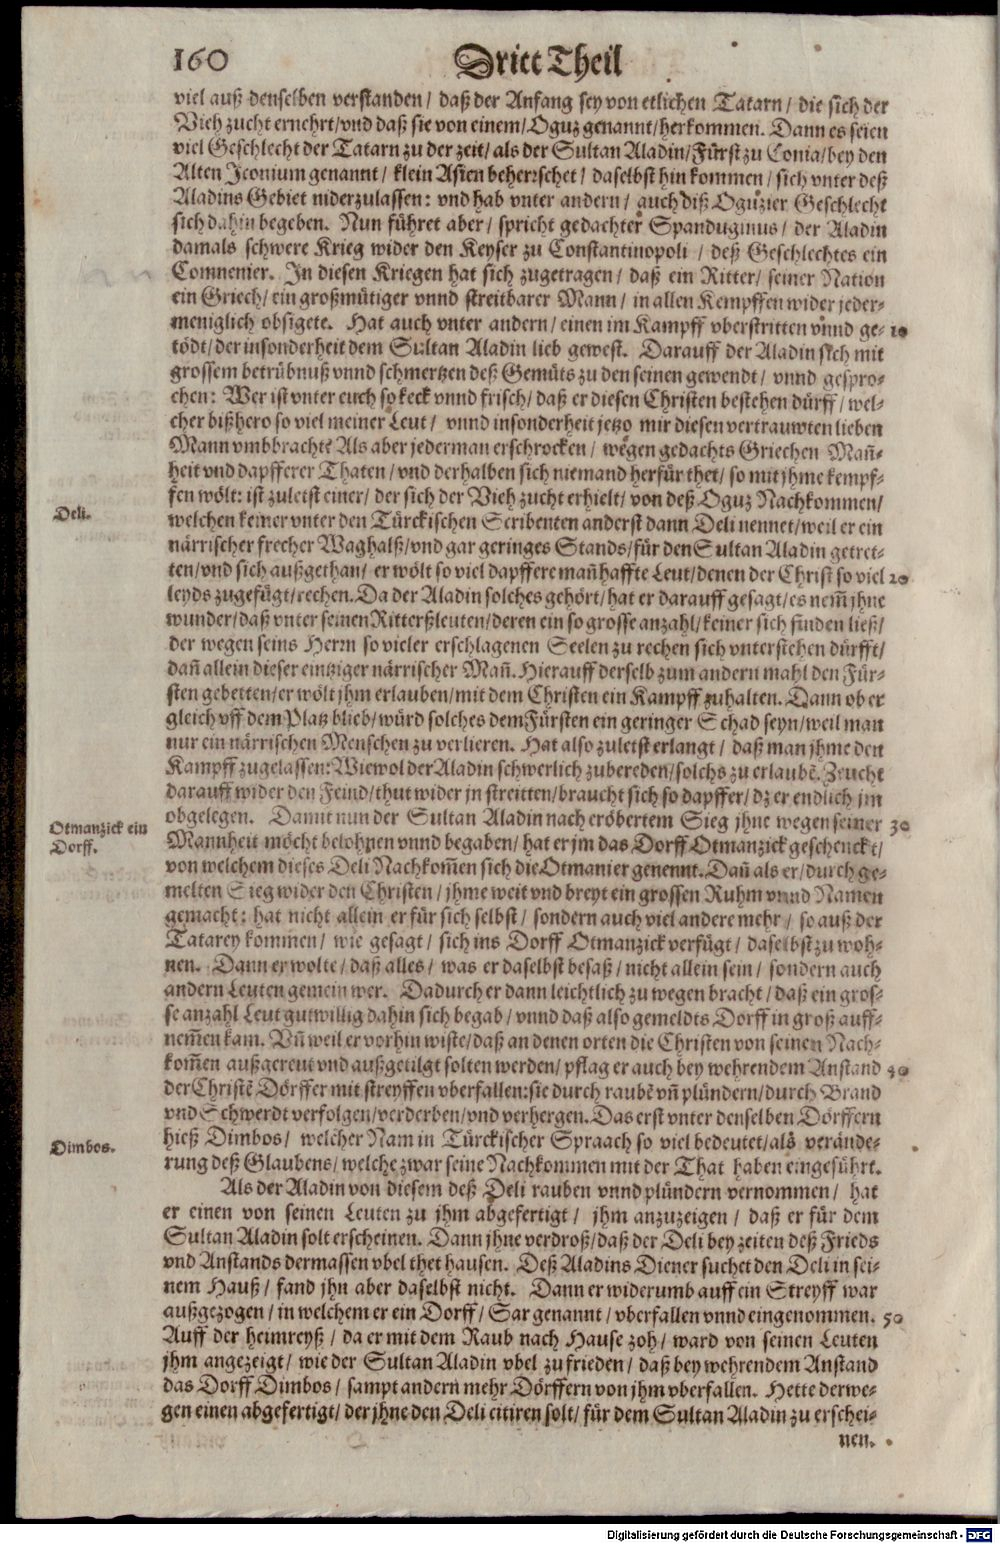 160
Dritt Theil
viel auß denselben verstanden / daß der Anfang sey von etlichen Tatarn / die sich der
Vieh zucht ernehrt / vnd daß sie von einem / Oguz genannt / herkommen. Dann es seien
viel Geschlecht der Tatarn zu der zeit / als der Sultan Aladin / Fürst zu Conia / bey den
Alten Iconium genannt / klein Asien beherrschet / daselbst hin kommen / sich vnter deß
Aladins Gebiet niderzulassen: vnd hab vnter andern / auch diß Oguzier Geschlecht
sich dahin begeben. Nun führet aber / spricht gedachter Spanduginus / der Aladin
damals schwere Krieg wider den Keyser zu Constantinopoli / deß Geschlechtes ein
Comnenier. In diesen Kriegen hat sich zugetragen / daß ein Ritter / seiner Nation
ein Griech / ein großmütiger vnnd streitbarer Mann / in allen Kempffen wider jeder-
meniglich obsigete. Hat auch vnter andern / einen im Kampff vberstritten vnnd ge- 10
tödt / der insonderheit dem Sultan Aladin lieb gewest. Darauff der Aladin sich mit
grossem betrübnuß vnnd schmertzen deß Gemüts zu den seinen gewendt / vnnd gespro-
chen: Wer ist vnter euch so keck vnnd frisch / daß er diesen Christen bestehen dürff / wel-
cher bißhero so viel meiner Leut / vnnd insonderheit jetzo mir diesen vertrauwten lieben
Mann vmbbrachte? Als aber jederman erschrocken / wegen gedachts Griechen Mañ-
heit vnd dapfferer Thaten / vnd derhalben sich niemand herfür thet / so mit jhme kempf-
fen wölt: ist zuletst einer / der sich der Vieh zucht erhielt / von deß Oguz Nachkommen /
Deli.
welchen keiner vnter den Türckischen Scribenten anderst dann Deli nennet / weil er ein
närrischer frecher Waghalß / vnd gar geringes Stands / für den Sultan Aladin getret-
ten / vnd sich außgethan / er wölt so viel dapffere mañhaffte Leut / denen der Christ so viel 20
leyds zugefügt / rechen. Da der Aladin solches gehört / hat er darauff gesagt / es nem̃ jhne
wunder / daß vnter seinen Ritterßleuten / deren ein so grosse anzahl / keiner sich finden ließ /
der wegen seins Herrn so vieler erschlagenen Seelen zu rechen sich vnterstehen dürfft /
dañ allein dieser eintziger närrischer Mañ. Hierauff derselb zum andern mahl den Für-
sten gebetten / er wölt jhm erlauben / mit dem Christen ein Kampff zuhalten. Dann ob er
gleich vff dem Platz blieb / würd solches dem Fürsten ein geringer Schad seyn / weil man
nur ein närrischen Menschen zu verlieren. Hat also zuletst erlangt / daß man jhme den
Kampff zugelassen: Wiewol der Aladin schwerlich zubereden / solchs zu erlaubẽ. Zeucht
darauff wider den Feind / thut wider jn streitten / braucht sich so dapffer / dz er endlich jm
obgelegen. Damit nun der Sultan Aladin nach eröbertem Sieg jhne wegen seiner 30
Otmanzick ein
Dorff.
Mannheit möcht belohnen vnnd begaben / hat er jm das Dorff Otmanzick geschenckt /
von welchem dieses Deli Nachkom̃en sich die Otmanier genennt. Dañ als er / durch ge-
melten Sieg wider den Christen / jhme weit vnd breyt ein grossen Ruhm vnnd Namen
gemacht: hat nicht allein er für sich selbst / sondern auch viel andere mehr / so auß der
Tatarey kommen / wie gesagt / sich ins Dorff Otmanzick verfügt / daselbst zu woh-
nen. Dann er wolte / daß alles / was er daselbst besaß / nicht allein sein / sondern auch
andern Leuten gemein wer. Dadurch er dann leichtlich zu wegen bracht / daß ein gros-
se anzahl Leut gutwillig dahin sich begab / vnnd daß also gemeldts Dorff in groß auff-
nem̃en kam. Vñ weil er vorhin wiste / daß an denen orten die Christen von seinen Nach-
kom̃en außgereut vnd außgetilgt solten werden / pflag er auch bey wehrendem Anstand 40
der Christẽ Dörffer mit streyffen vberfallen: sie durch raubẽ vñ plündern / durch Brand
vnd Schwerdt verfolgen / verderben / vnd verhergen. Das erst vnter denselben Dörffern
Dimbos.
hieß Dimbos / welcher Nam in Türckischer Spraach so viel bedeutet / als verände-
rung deß Glaubens / welche zwar seine Nachkommen mit der That haben eingeführt.
Als der Aladin von diesem deß Deli rauben vnnd plündern vernommen / hat
er einen von seinen Leuten zu jhm abgefertigt / jhm anzuzeigen / daß er für dem
Sultan Aladin solt erscheinen. Dann jhne verdroß / daß der Deli bey zeiten deß Frieds
vnd Anstands dermassen vbel thet hausen. Deß Aladins Diener suchet den Deli in sei-
nem Hauß / fand jhn aber daselbst nicht. Dann er widerumb auff ein Streyff war
außgezogen / in welchem er ein Dorff / Sar genannt / vberfallen vnnd eingenommen. 50
Auff der heimreyß / da er mit dem Raub nach Hause zoh / ward von seinen Leuten
jhm angezeigt / wie der Sultan Aladin vbel zu frieden / daß bey wehrendem Anstand
das Dorff Dimbos / sampt andern mehr Dörffern von jhm vberfallen. Hette derwe-
gen einen abgefertigt / der jhne den Deli citiren solt / für dem Sultan Aladin zu erschei-
nen.
Digitalisierung gefördert durch die Deutsche Forschungsgemeinschaft - DFG